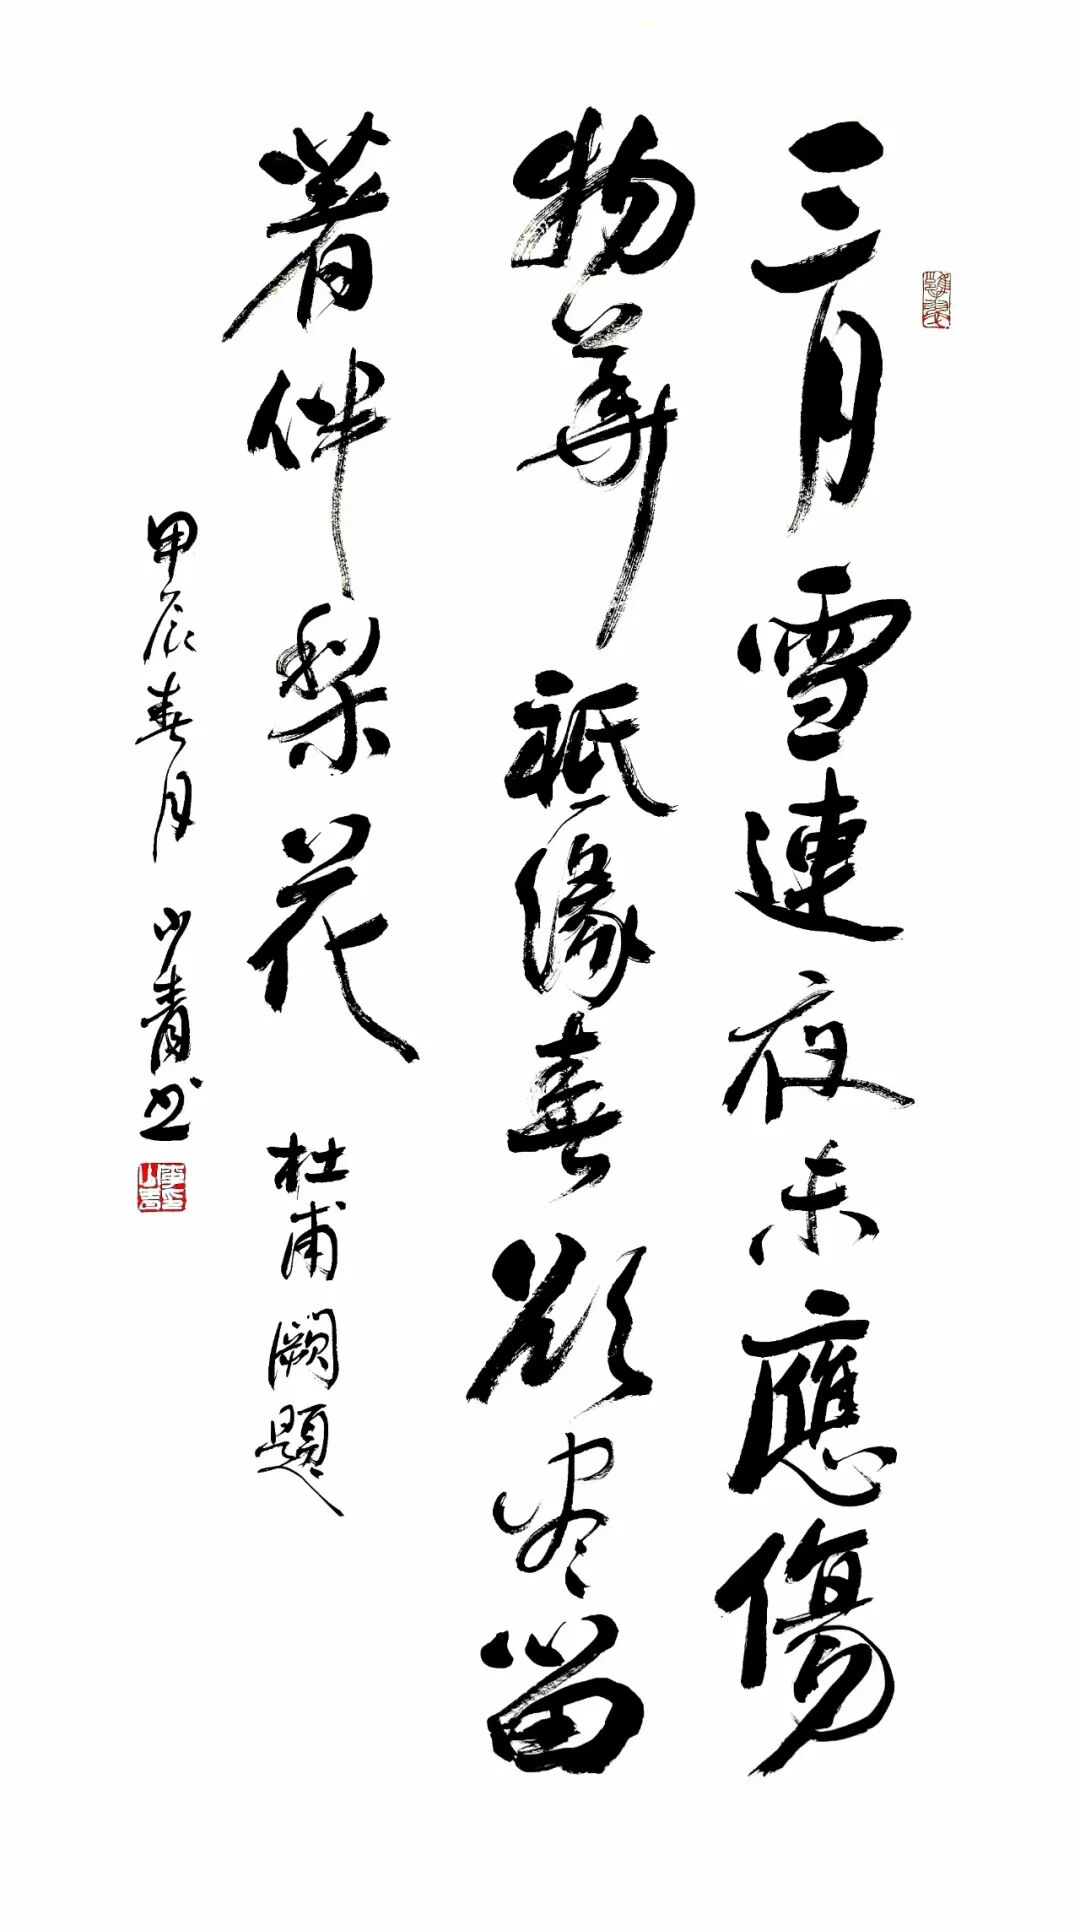 三月雪連夜未應傷
物華祇緣春欲尽留
著伴梨花 杜甫闕題
甲辰春月 山青书